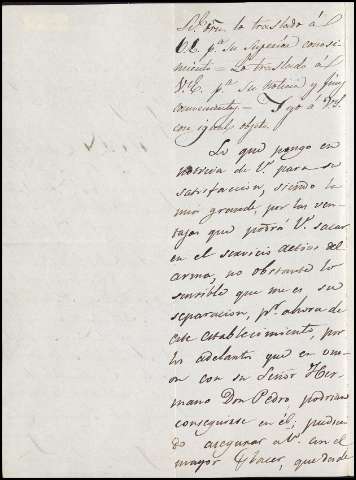 Rl. Orn. lo traslado á
V.E. pa. su superior conoci-
miento = Lo traslado á
V.E. pa. su noticia y fines
convenientes = Y yo á V.S.
con igual objeto.
Lo que pongo en
noticia de V. para su
satisfacción, siendo la
mia grande, por las ven-
tajas que podrá V. sacar
en el servicio activo del
arma, no obstante lo
sensible que me es su
separacion, pr. ahora de
este establecimiento, por
los adelantos que en uni-
on con su Señor Her-
mano Don Pedro podrian
conseguirse en él; pudien-
do asegurar a V. con el
mayor placer, que desde